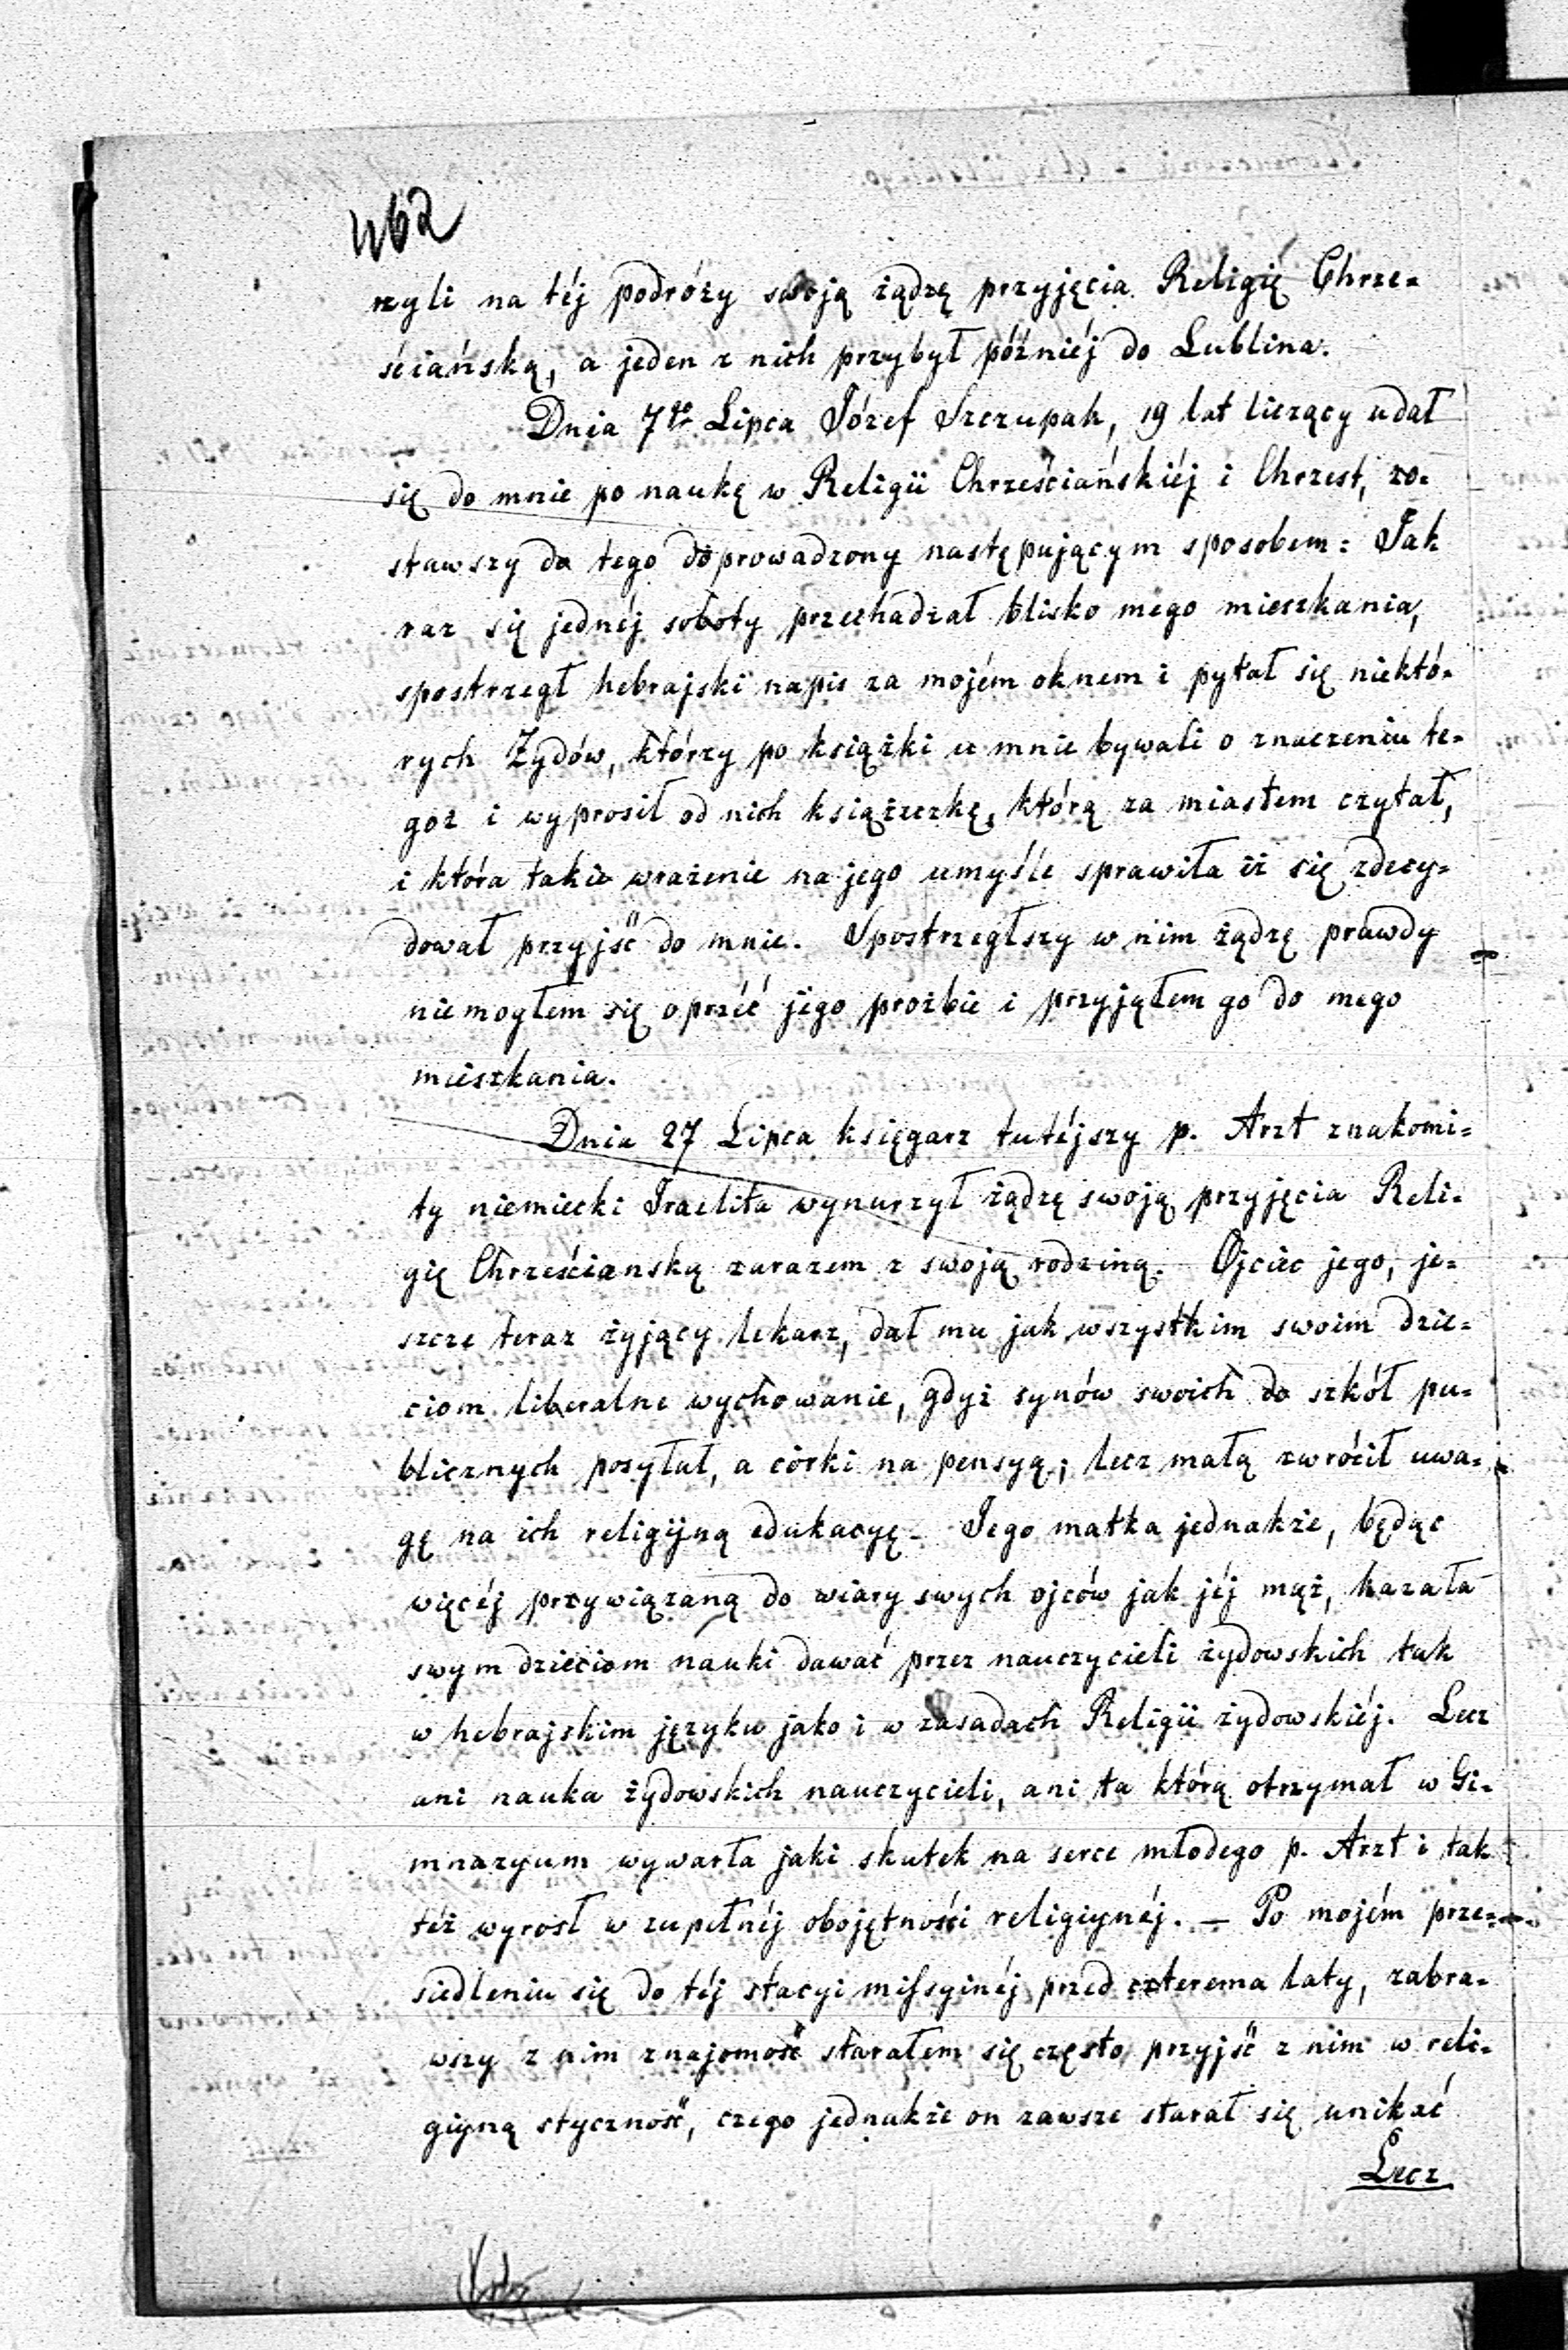 462
rzyli na téj podróży swoją żądzę przyjęcia Religię Chrze-
ściańską, a jeden z nich przybył późniéj do Lublina.
Dnia 7go Lipca Józef Szczupak, 19 lat liczący udał
się do mnie po naukę w Religii Chrześciańskiéj i Chrzest, zo-
stawszy do tego doprowadzony następującym sposobem: Jak
raz się jednéj soboty przechadzał blisko mego mieszkania,
spostrzegł hebrajski napis za mojém oknem i pytał się niektó-
rych Żydów, którzy po książki u mnie bywali o znaczeniu te-
goż i wyprosił od nich książeczkę, którą za miastem czytał,
i która takie wrażenie na jego umyśle sprawiła iż się zdecy-
dował przyjść do mnie. Spostrzegłszy w nim żądzę prawdy
niemogłem się oprzéć jego prożbie i przyjąłem go do mego
mieszkania.
Dnia 27 Lipca księgarz tutéjszy p. Arzt znakomi-
ty niemiecki Izraelita wynurzył żądzę swoją przyjęcia Reli-
gię Chrześcianską zarazem z swoją rodziną. Ojciec jego, je-
szcze teraz żyjący lekarz, dał mu jak wszystkim swoim dzie-
ciom liberalne wychowanie, gdyż synów swoich do szkół pu-
blicznych posyłał, a córki na pensyą; lecz małą zwrócił uwa-
gę na ich religijną edukacyę. Jego matka jednakże, będąc
więcéj przywiązaną do wiary swych ojców jak jéj mąż, kazała
swym dzieciom nauki dawać przez nauczycieli żydowskich tak
w hebrajskim języku jako i w zasadach Religii żydowskiéj. Lecz
ani nauka żydowskich nauczycieli, ani ta którą otrzymał w Gi-
mnazyum wywarła jaki skutek na serce młodego p. Arzt i tak
téż wyrosł w zupełnéj obojętności religiynéj. — Po mojém prze-
siedleniu się do téj stacyi missyinéj przed czterema laty, zabra-
wszy z nim znajomość starałem się często przyjść z nim w reli-
giyną styczność, czego jednakże on zawsze starał się unikać
Lecz